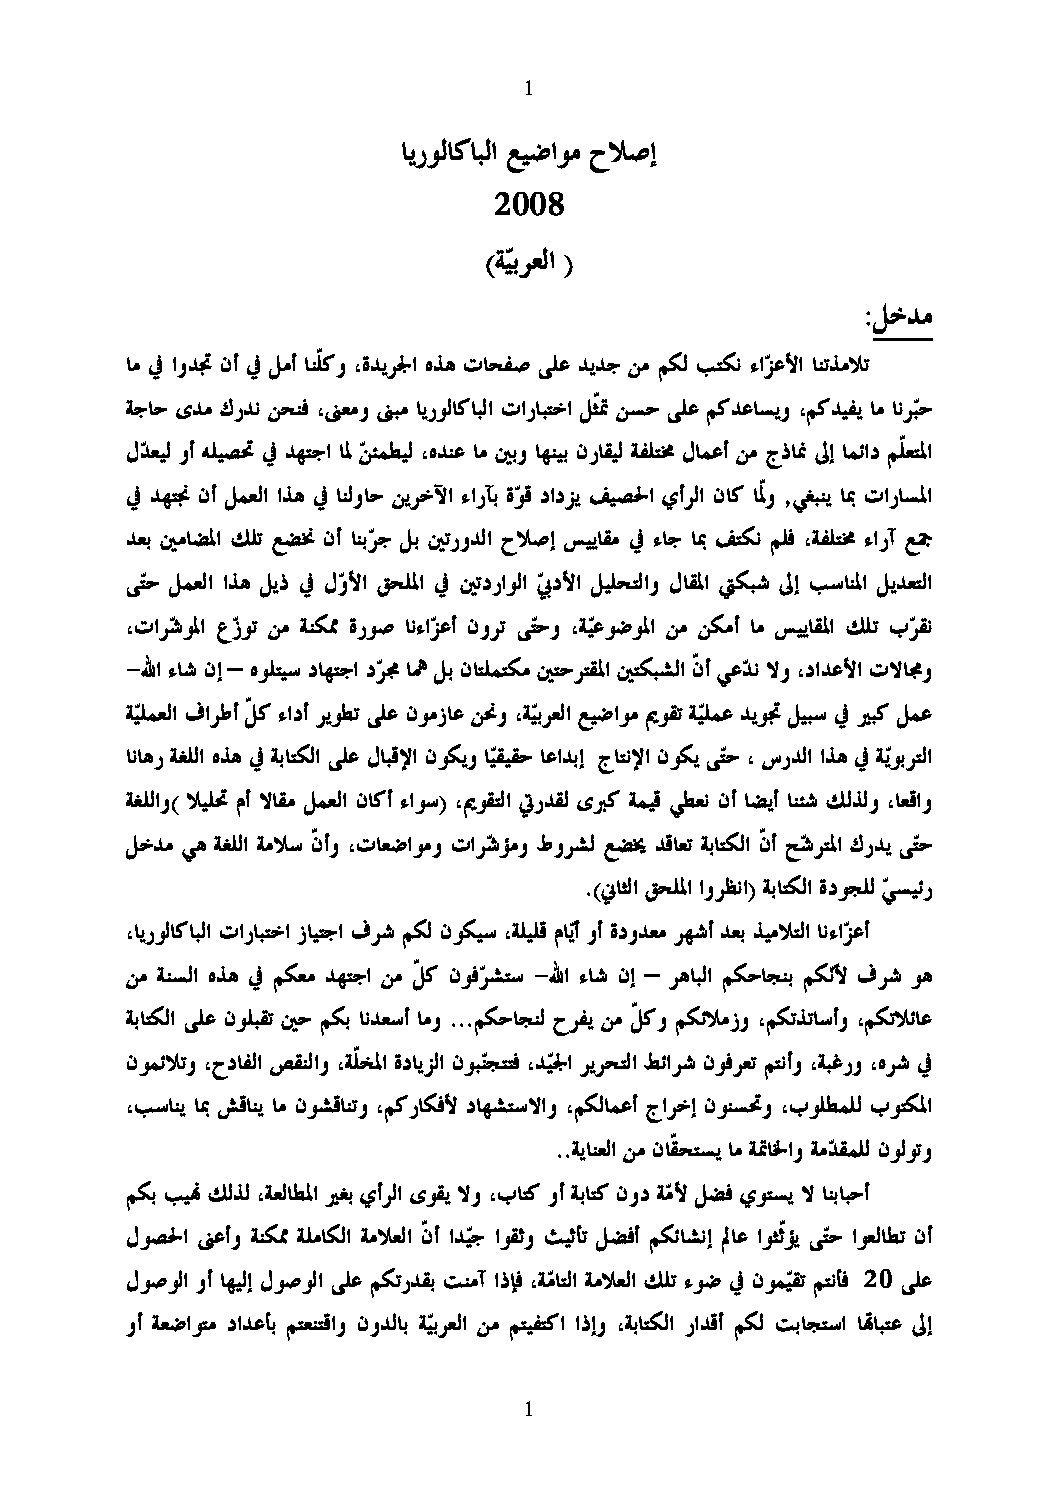 1
إصلاح مواضيع الباكالوريا
2008
( العربيّة)
مدخل:
تلامذتنا الأعزّاء نكتب لكم من جديد على صفحات هذه الجريدة، وكلّنا أمل في أن تجدوا في ما
حبّرنا ما يفيدكم، ويساعدكم على حسن تمثّل اختبارات الباكالوريا مبنى ومعنى، فنحن ندرك مدى حاجة
المتعلّم دائما إلى نماذج من أعمال مختلفة ليقارن بينها وبين ما عنده، ليطمئنّ لما اجتهد في تحصيله أو ليعدّل
المسارات بما ينبغي, ولمّا كان الرأي الحصيف يزداد قوّة بآراء الآخرين حاولنا في هذا العمل أن نجتهد في
جمع آراء مختلفة، فلم نكتف بما جاء في مقاييس إصلاح الدورتين بل جرّبنا أن نخضع تلك المضامين بعد
التعديل المناسب إلى شبكتي المقال والتحليل الأدبيّ الواردتين في الملحق الأوّل في ذيل هذا العمل حتّى
نقرّب تلك المقاييس ما أمكن من الموضوعيّة، وحتّى ترون أعزّاءنا صورة ممكنة من توزّع الموشّرات،
ومجالات الأعداد، ولا ندّعي أنّ الشبكتين المقترحتين مكتملتان بل هما مجرّد اجتهاد سيتلوه – إن شاء الله–
عمل كبير في سبيل تجويد عمليّة تقويم مواضيع العربيّة، ونحن عازمون على تطوير أداء كلّ أطراف العمليّة
التربويّة في هذا الدرس ، حتّى يكون الإنتاج إبداعا حقيقيّا ويكون الإقبال على الكتابة في هذه اللغة رهانا
واقعا، ولذلك شئنا أيضا أن نعطي قيمة كبرى لقدرتي التقويم، (سواء أكان العمل مقالا أم تحليلا )واللغة
حتّى يدرك المترشّح أنّ الكتابة تعاقد يخضع لشروط ومؤشّرات ومواضعات، وأنّ سلامة اللغة هي مدخل
رئيسيّ للجودة الكتابة (انظروا الملحق الثاني).
أعزّاءنا التلاميذ بعد أشهر معدودة أو أيّام قليلة، سيكون لكم شرف اجتياز اختبارات الباكالوريا،
هو شرف لأنّكم بنجاحكم الباهر – إن شاء الله– ستشرّفون كلّ من اجتهد معكم في هذه السنة من
عائلاتكم، وأساتذتكم، وزملائكم وكلّ من يفرح لنجاحكم... وما أسعدنا بكم حين تقبلون على الكتابة
في شره، ورغبة، وأنتم تعرفون شرائط التحرير الجيّد، فتتجنّبون الزيادة المخلّة، والنقص الفادح، وتلائمون
المكتوب للمطلوب، وتحسنون إخراج أعمالكم، والاستشهاد لأفكاركم، وتناقشون ما يناقش بما يناسب،
وتولون للمقدّمة والخاتمة ما يستحقّان من العناية..
أحبابنا لا يستوي فضل لأمّة دون كتابة أو كتاب، ولا يقوى الرأي بغير المطالعة، لذلك نهيب بكم
أن تطالعوا حتّى يؤثّثوا عالم إنشائكم أفضل تأثيث وثقوا جيّدا أنّ العلامة الكاملة ممكنة وأعنى الحصول
على 20 فأنتم تقيّمون في ضوء تلك العلامة التامّة، فإذا آمنت بقدرتكم على الوصول إليها أو الوصول
إلى عتباتها استجابت لكم أقدار الكتابة، وإذا اكتفيتم من العربيّة بالدون واقتنعتم بأعداد متواضعة أو
1